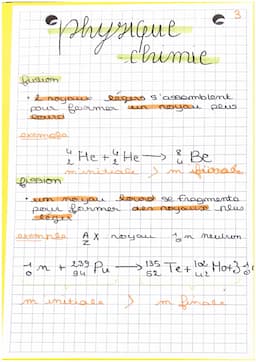 3
physique
chimie
fusion
• 2 noyaux légers s'assemblent
pour former un noyau plus
lourd
exemple
⁴₂He + ⁴₂He → ⁸₄Be
m initiale > m finale
fission
• un noyau lourd se fragmente
pour former des noyaux plus
léger
exemple ᴬ_Z X noyau ¹₀n neutron
¹₀n + ²³⁹₉₄Pu → ¹³⁵₅₂Te + ¹⁰²₄₂Mo + 3 ¹₀
m initiale > m finale